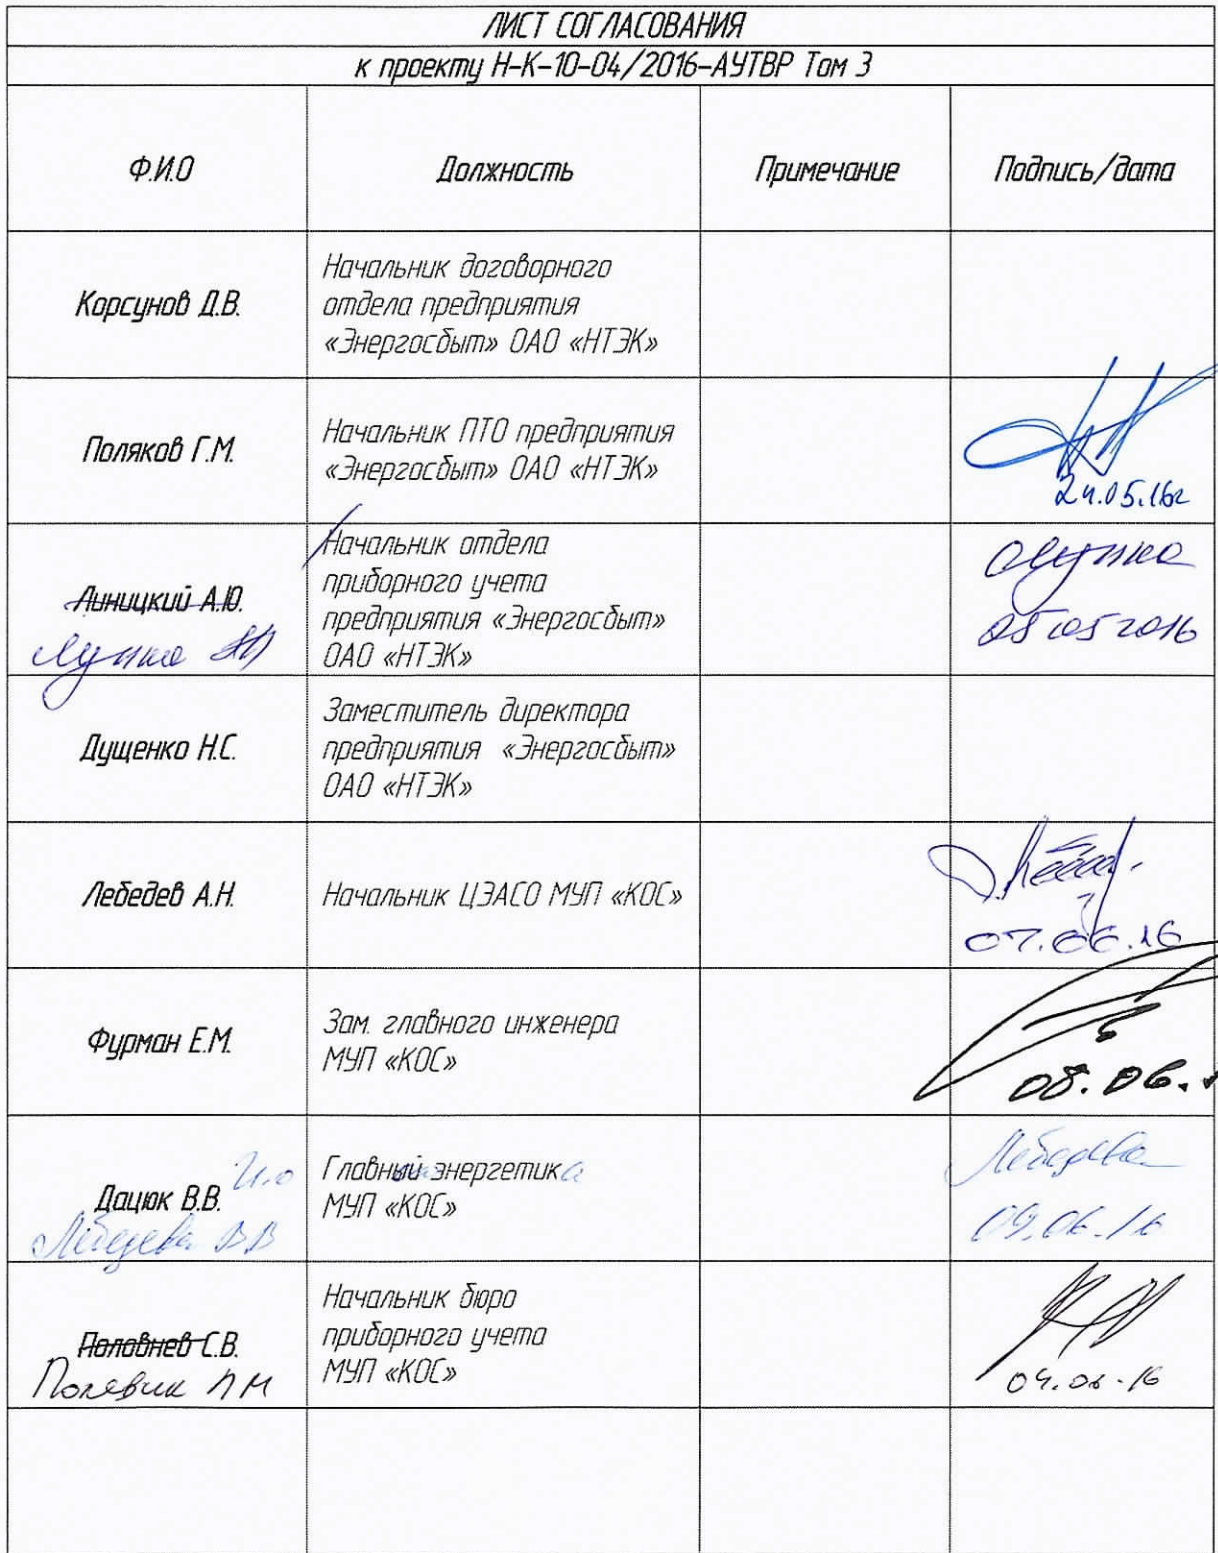 ЛИСТ СОГЛАСОВАНИЯ
к проекту Н-К-10-04/2016-АУТВР Том 3
Ф.И.О
Должность
Примечание
Подпись/дата
Корсунов Д.В.
Начальник договорного
отдела предприятия
«Энергосбыт» ОАО «НТЭК»
Поляков Г.М.
Начальник ПТО предприятия
«Энергосбыт» ОАО «НТЭК»
24.05.16г
Линицкий А.Ю.
Начальник отдела
приборного учета
предприятия «Энергосбыт»
ОАО «НТЭК»
05 2016
Дущенко Н.С.
Заместитель директора
предприятия «Энергосбыт»
ОАО «НТЭК»
Лебедев А.Н.
Начальник ЦЭАСО МУП «КОС»
07.06.16
Фурман Е.М.
Зам. главного инженера
МУП «КОС»
08.06.
Дацюк В.В. И.о
Лебедева В В
Главный энергетика
МУП «КОС»
Лебедева
09.06.16
Половнев С.В.
Полевик
Начальник бюро
приборного учета
МУП «КОС»